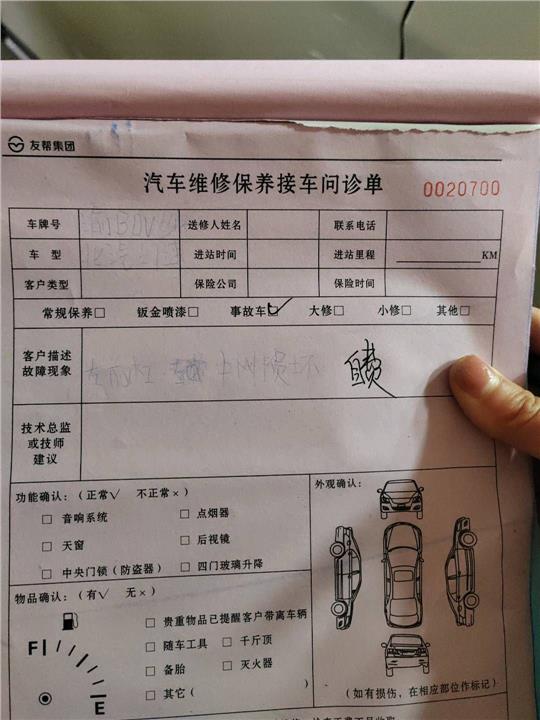 友帮集团
汽车维修保养接车问诊单 0020700
车牌号 送修人姓名 联系电话
车 型 进站时间 进站里程 KM
客户类型 保险公司 保险时间
常规保养□ 钣金喷漆□ 事故车☑ 大修□ 小修□ 其他□
客户描述
故障现象
中网损坏 自费
技术总监
或技师
建议
功能确认:(正常√ 不正常×) 外观确认:
□ 音响系统 □ 点烟器
□ 天窗 □ 后视镜
□ 中央门锁(防盗器) □ 四门玻璃升降
物品确认:(有√ 无×)
□ 贵重物品已提醒客户带离车辆
F □ 随车工具 □ 千斤顶
□ 备胎 □ 灭火器
E □ 其它( )
(如有损伤,在相应部位作标记)